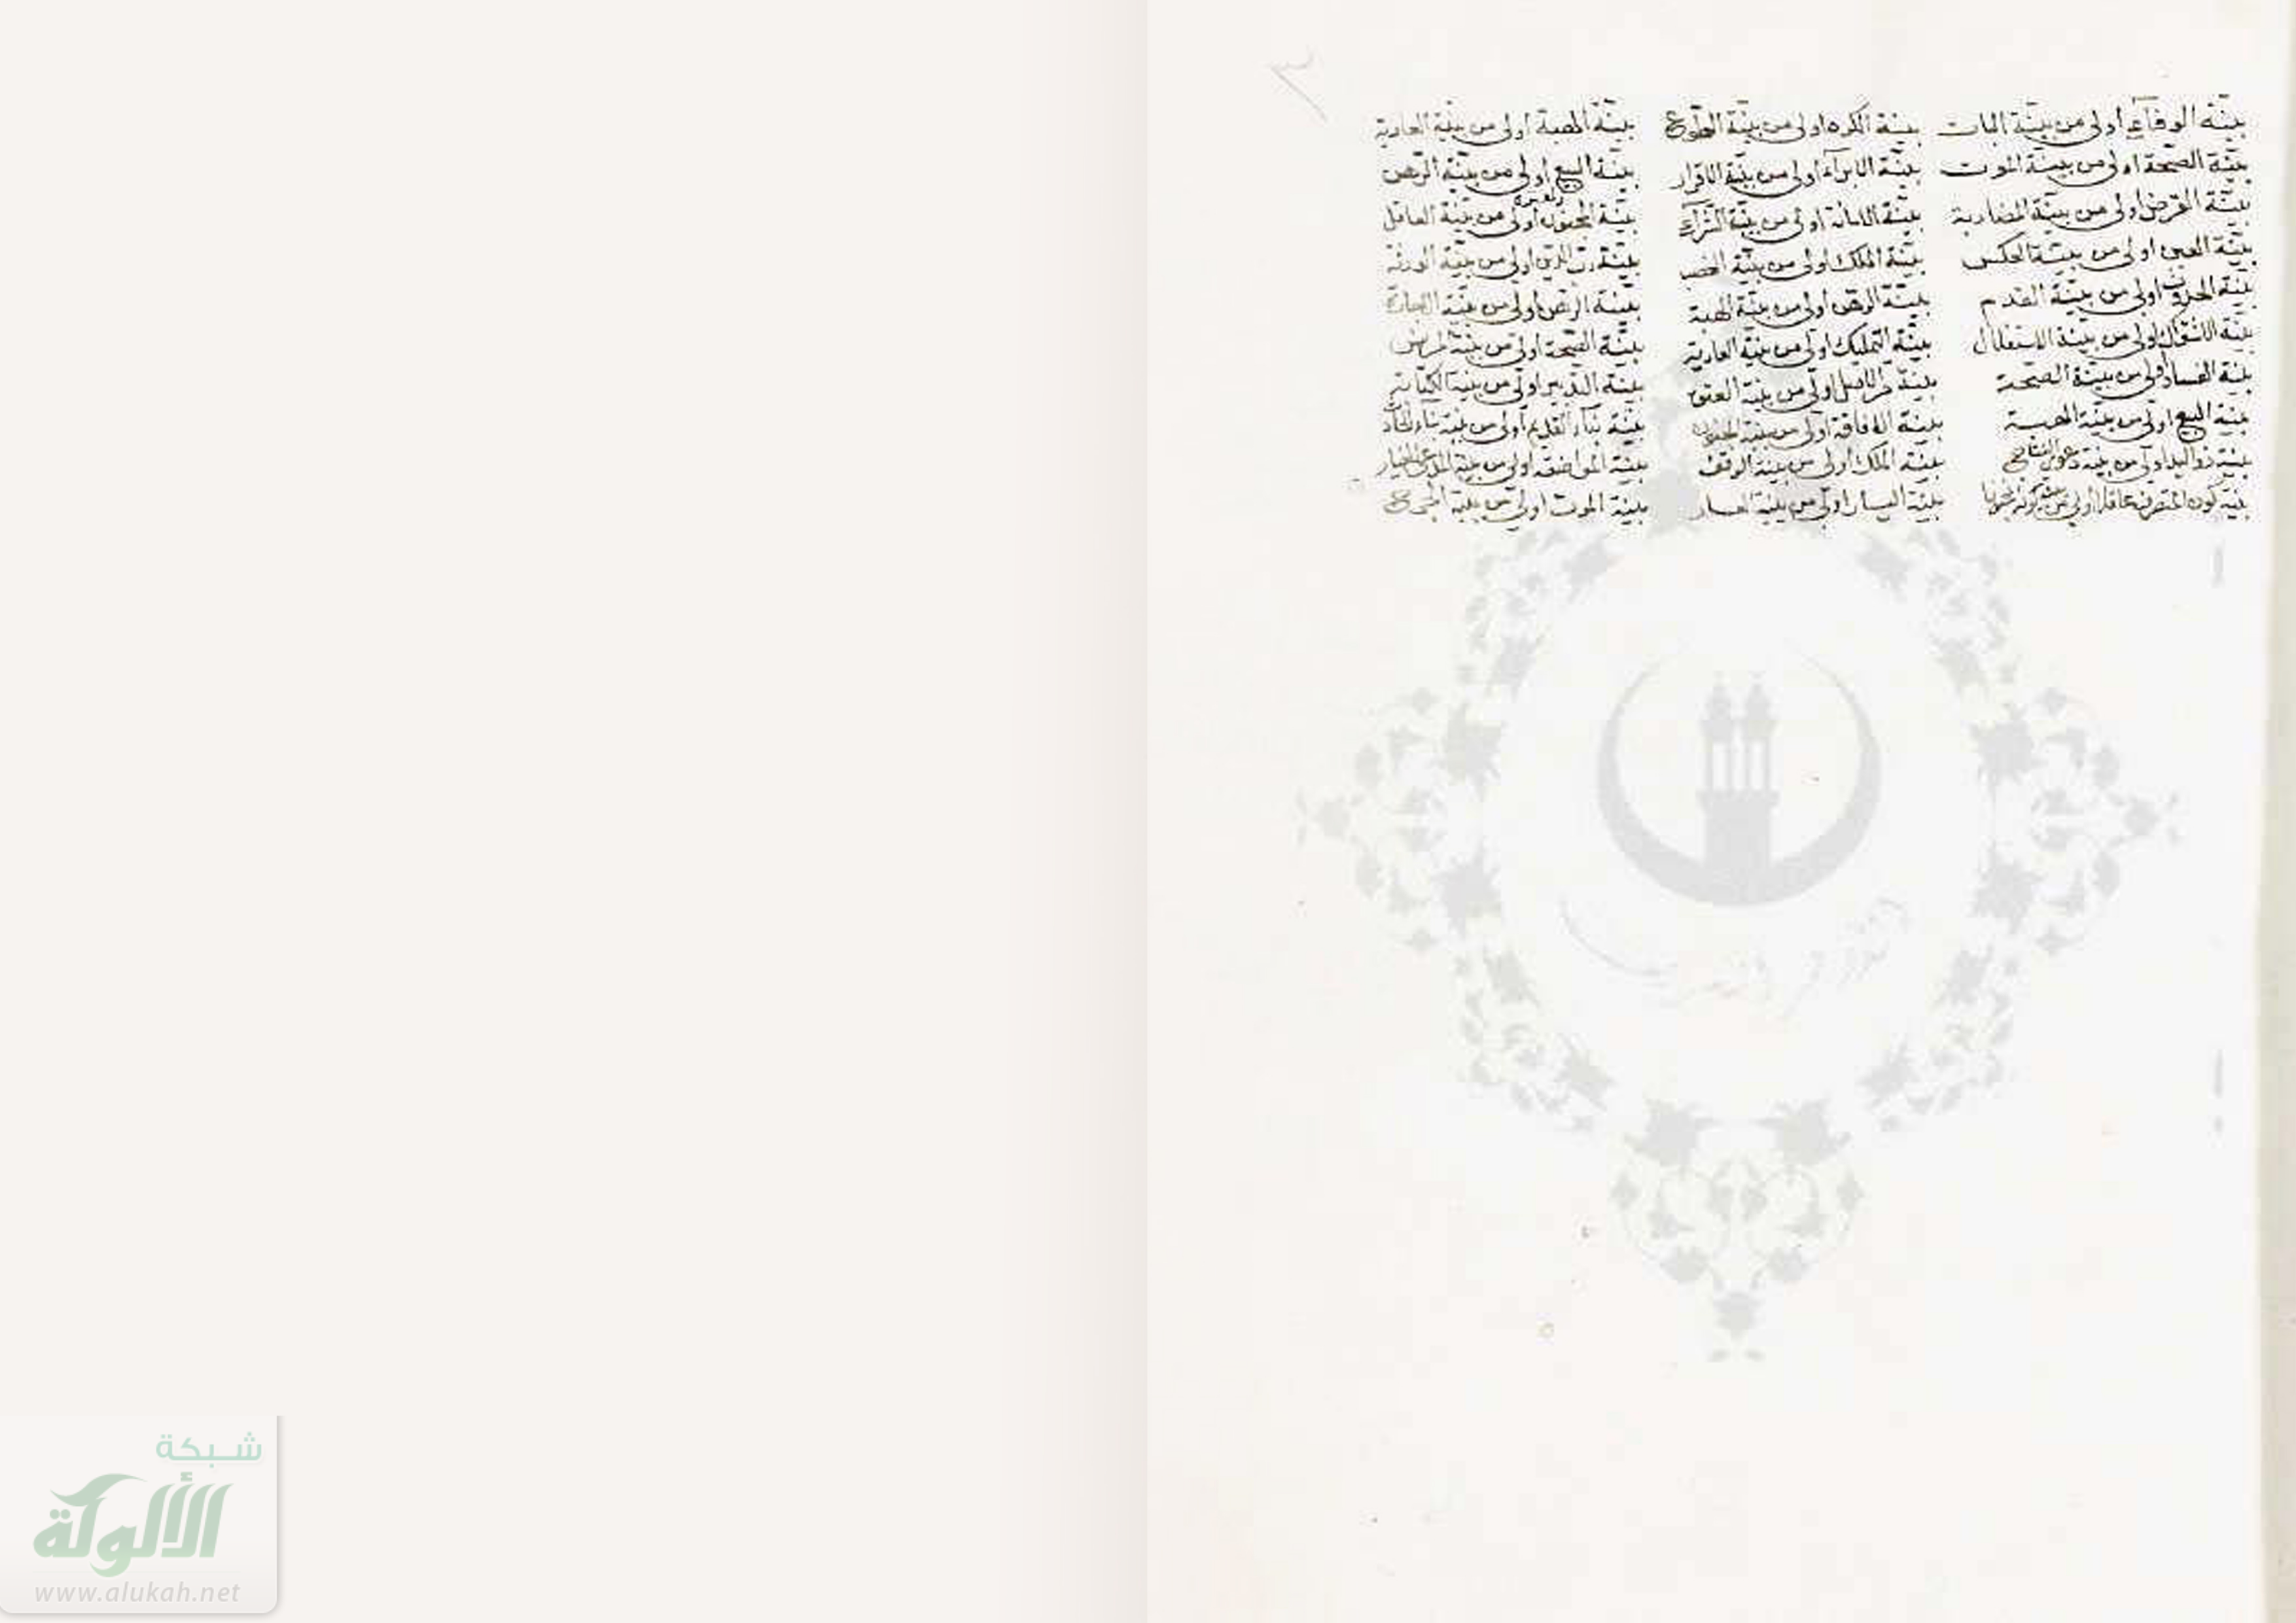 بينة الوفاء اولى من بينة البات
بينة الصحة اولى من بينة الموت
بينة القرض اولى من بينة المضاربة
بينة الغبن اولى من بينة العكس
بينة الحدوث اولى من بينة القدم
بينة اولى من بينة الاستغلال
بينة الفساد اولى من بينة الصحة
بينة البيع اولى من بينة الهبة
بينة ذو اليد اولى من بينة دعوى النتاج
بينة كون المتصرف عاقلا اولى من بينة كونه مجنونا
بينة الكره اولى من بينة الطوع
بينة الابراء اولى من بينة الاقرار
بينة الامانة اولى من بينة الشراء
بينة الملك اولى من بينة الغصب
بينة الرهن اولى من بينة الهبة
بينة التمليك اولى من بينة العارية
بينة الاصل اولى من بينة العتق
بينة الافاقة اولى من بينة الجنون
بينة الملك اولى من بينة الوقف
بينة اليسار اولى من بينة
بينة الهبة اولى من بينة العارية
بينة البيع اولى من بينة الرهن
بينة المجنون اولى من بينة العاقل
بينة رب الدين اولى من بينة الورثة
بينة الرهن اولى من بينة
بينة الصحة اولى من بينة المرض
بينة التدبير اولى من بينة الكتابة
بينة بناء القديم اولى من بينة بناء
بينة المواضعة اولى من بينة
بينة الموت اولى من بينة
شبكة
الألوكة
www.alukah.net